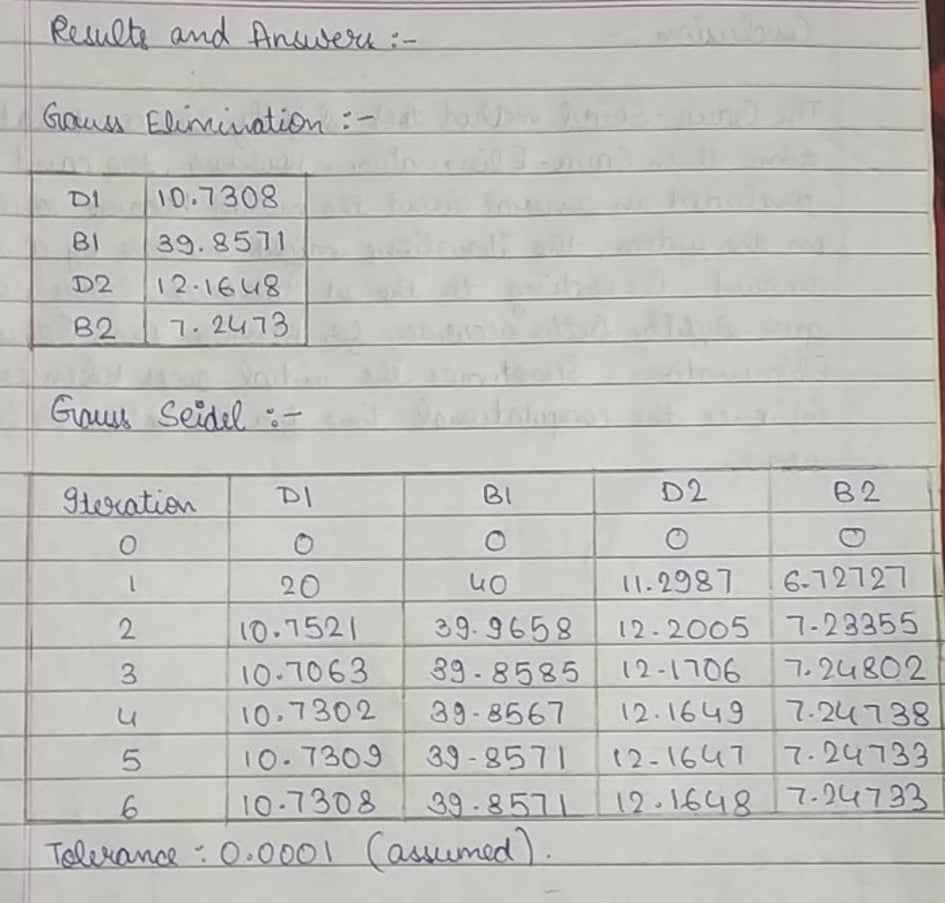 Results and Answers :-
Gauss Elimination :-
D1 10.7308
B1 39.8571
D2 12.1648
B2 7.2473
Gauss Seidel :-
Iteration D1 B1 D2 B2
0 0 0 0 0
1 20 40 11.2987 6.72727
2 10.7521 39.9658 12.2005 7.23355
3 10.7063 39.8585 12.1706 7.24802
4 10.7302 39.8567 12.1649 7.24738
5 10.7309 39.8571 12.1647 7.24733
6 10.7308 39.8571 12.1648 7.24733
Tolerance : 0.0001 (assumed).